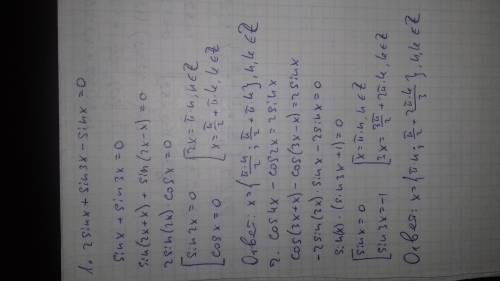 1. 2sinx + sin3x - sinx = 0
sinx + sin3x = 0
sin(2x+x) + sin(2x-x) = 0
2sin(2x) cosx = 0
[sin2x = 0 [2x = πn, n∈Z
[cosx = 0 [x = π/2 + πk, k∈Z
Ответ: x = {πn/2; π/2 + πk}, n,k ∈ Z
2. cos4x - cos2x = 2sinx
cos(3x+x) - cos(3x-x) = 2sinx
-2sin(3x)·sinx - 2sinx = 0
sin(x)·(sin3x+1) = 0
[sinx = 0 [x = πn, n∈Z
[sin3x = -1 [3x = 3π/2 + 2πk, k∈Z
Ответ: x = {πn; π/2 + 2πk/3}, n,k ∈ Z